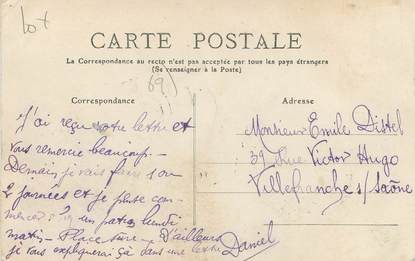 lot
CARTE POSTALE
La Correspondance au recto n'est pas acceptée par tous les pays étrangers
(Se renseigner à la Poste)
69
Correspondance
Adresse
J'ai reçu votre lettre et
vous remercie beaucoup.
Demain je vais faire
2 journées et je pense com-
mencer un patron lundi
matin - Place D'ailleurs
je vous expliquerai ça dans une lettre
Daniel
Monsieur Emile Distel
39 Rue Victor Hugo
Villefranche s/ Saône